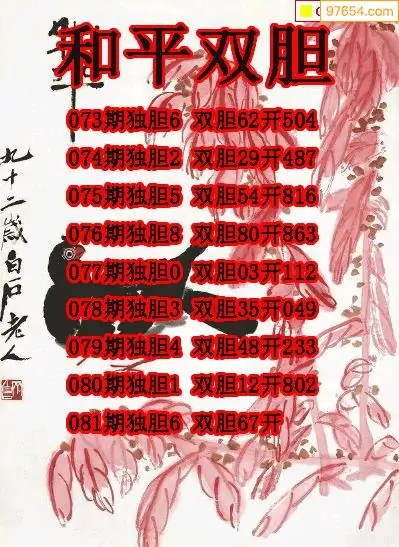 97654.com
和平双胆
073期独胆6 双胆62开504
074期独胆2 双胆29开487
075期独胆5 双胆54开816
076期独胆8 双胆80开863
077期独胆0 双胆03开112
078期独胆3 双胆35开049
079期独胆4 双胆48开233
080期独胆1 双胆12开802
081期独胆6 双胆67开
九十二岁白石老人